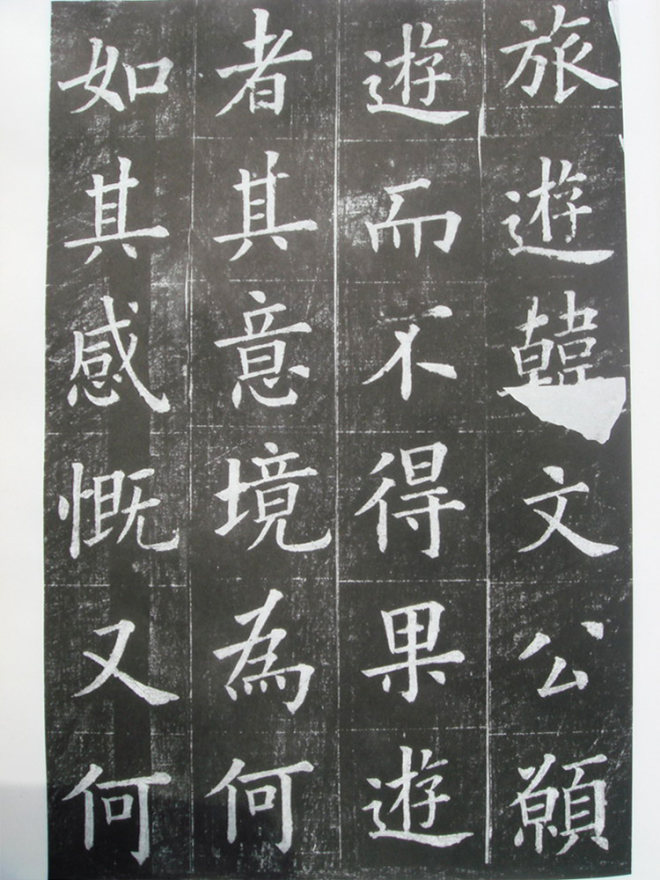 旅遊韓文公願
遊而不得果遊
者其意境為何
如其感慨又何